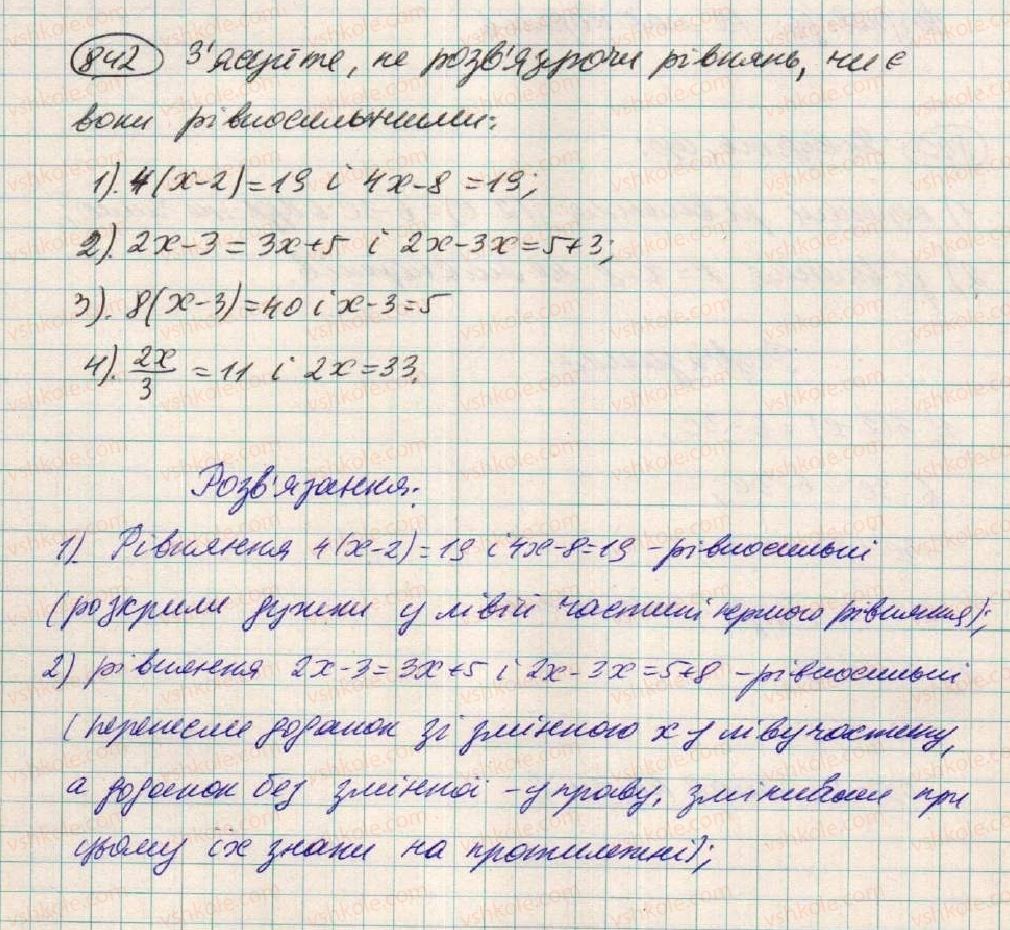 842 З'ясуйте, не розв'язуючи рівнянь, чи є
вони рівносильними:
1). 4(x-2)=19 і 4x-8=19;
2). 2x-3=3x+5 і 2x-3x=5+3;
3). 8(x-3)=40 і x-3=5
4). 2x/3 = 11 і 2x=33.
Розв'язання:
1) Рівняння 4(x-2)=19 і 4x-8=19 - рівносильні
(розкрили дужки у лівій частині першого рівняння);
2) рівняння 2x-3=3x+5 і 2x-3x=5+8 - рівносильні
(перенесли доданок зі змінною x у ліву частину,
а доданок без змінної - у праву, змінивши при
цьому їх знаки на протилежні);